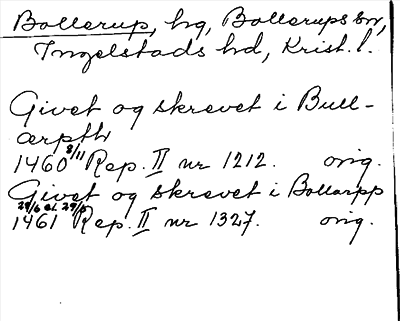 Bollerup, hg, Bollerups sn,
Ingelstads hd, Krist. l.
Givet og skrevet i Bull-
ærpth
1460 8/11 Rep. II nr 1212. orig.
Givet og skrevet i Bollarpp
1461 Rep. II nr 1327. orig.